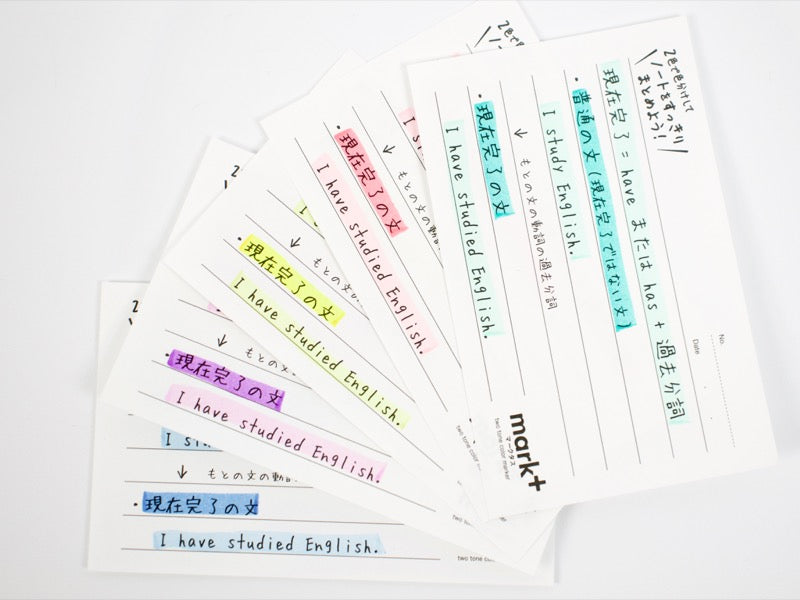 2色で色分けして
ノートをすっきり
まとめよう!
No.
Date
現在完了 = have または has + 過去分詞
・普通の文(現在完了ではない文)
I study English.
↓ もとの文の動詞の過去分詞
・現在完了の文
I have studied English.
mark+
マークタス
two tone color marker
I st
↓ もとの文の動
・現在完了の文
I have studied English.
two tone color
↓ もとの文の
・現在完了の文
I have studied English.
↓ もとの文
・現在完了の文
I have studied English.
I stu
↓ もとの文の動詞
・現在完了の文
I have studied English.
two tone col